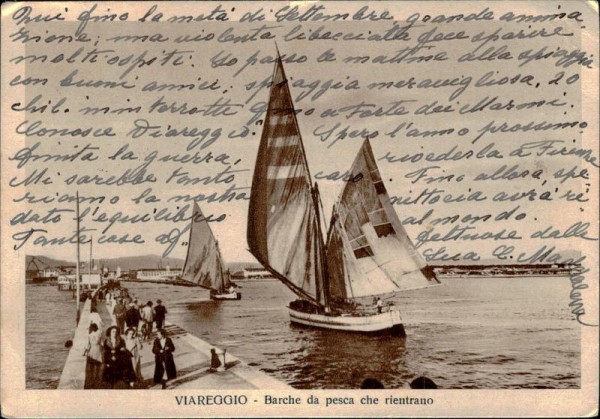 Qui fino la metà di settembre grande anima
zione; una violente libecciate fece sparire
molti ospiti. Io passo le mattine alla spiaggia
con buoni amici, spiaggia meravigliosa, 20
chil. ininterrotti fino a Forte dei Marmi.
Conosce Viareggio? Spero l'anno prossimo
finita la guerra, rivederla a Firenze
Mi sarebbe tanto Fino allora, spe
riamo la nostra vittoria avrà ri
dato l'equilibrio al mondo.
Tante cose affettuose dalla
Sua C.
VIAREGGIO - Barche da pesca che rientrano